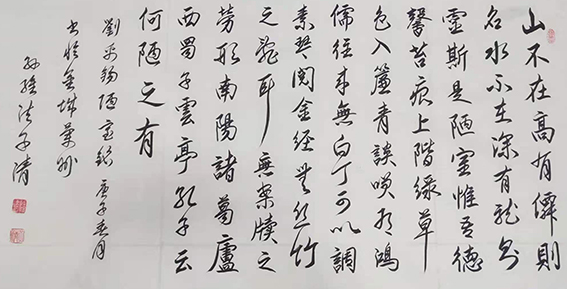 山不在高有僊則
名水不在深有龍則
靈斯是陋室惟吾德
馨苔痕上階緑草
色入簾青談笑有鴻
儒往來無白丁可以調
素琴閱金經無丝竹
之亂耳無案牘之
勞形南陽諸葛廬
西蜀子雲亭孔子云
何陋之有
劉禹錫陋室銘 庚子春月
金城蘭州
清